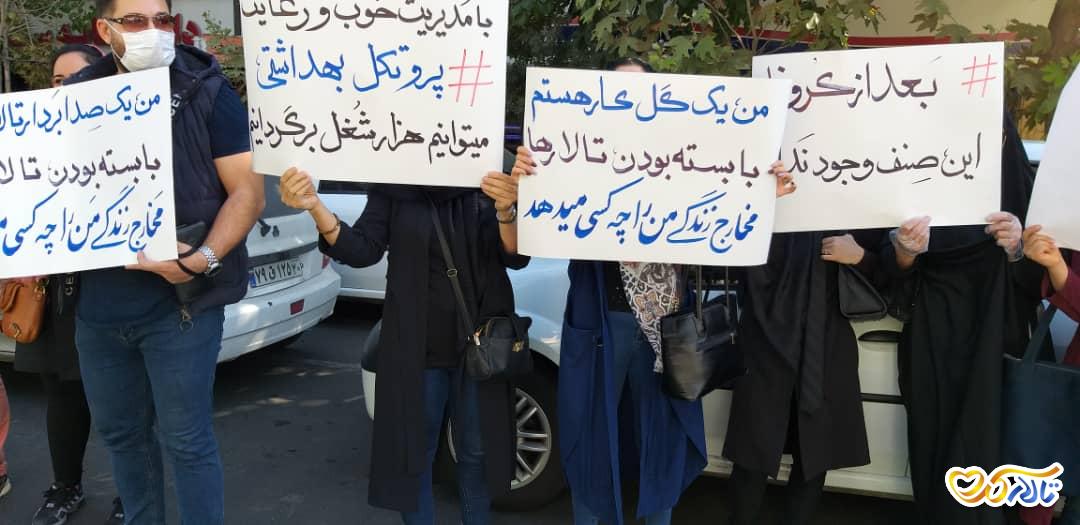 من یک صدابردار تالا
با بسته بودن تالا
مخارج زندگی من را چه کسی م
با مدیریت خوب و رعایت
#پروتکل بهداشتی
میتوانیم هزار شُغل برگردانیم
من یک گل کار هستم
با بسته بودن تالارها
مخارج زندگی من را چه کسی میدهد
# بعد از کرو
این صِنف وجود ند
تالارکده